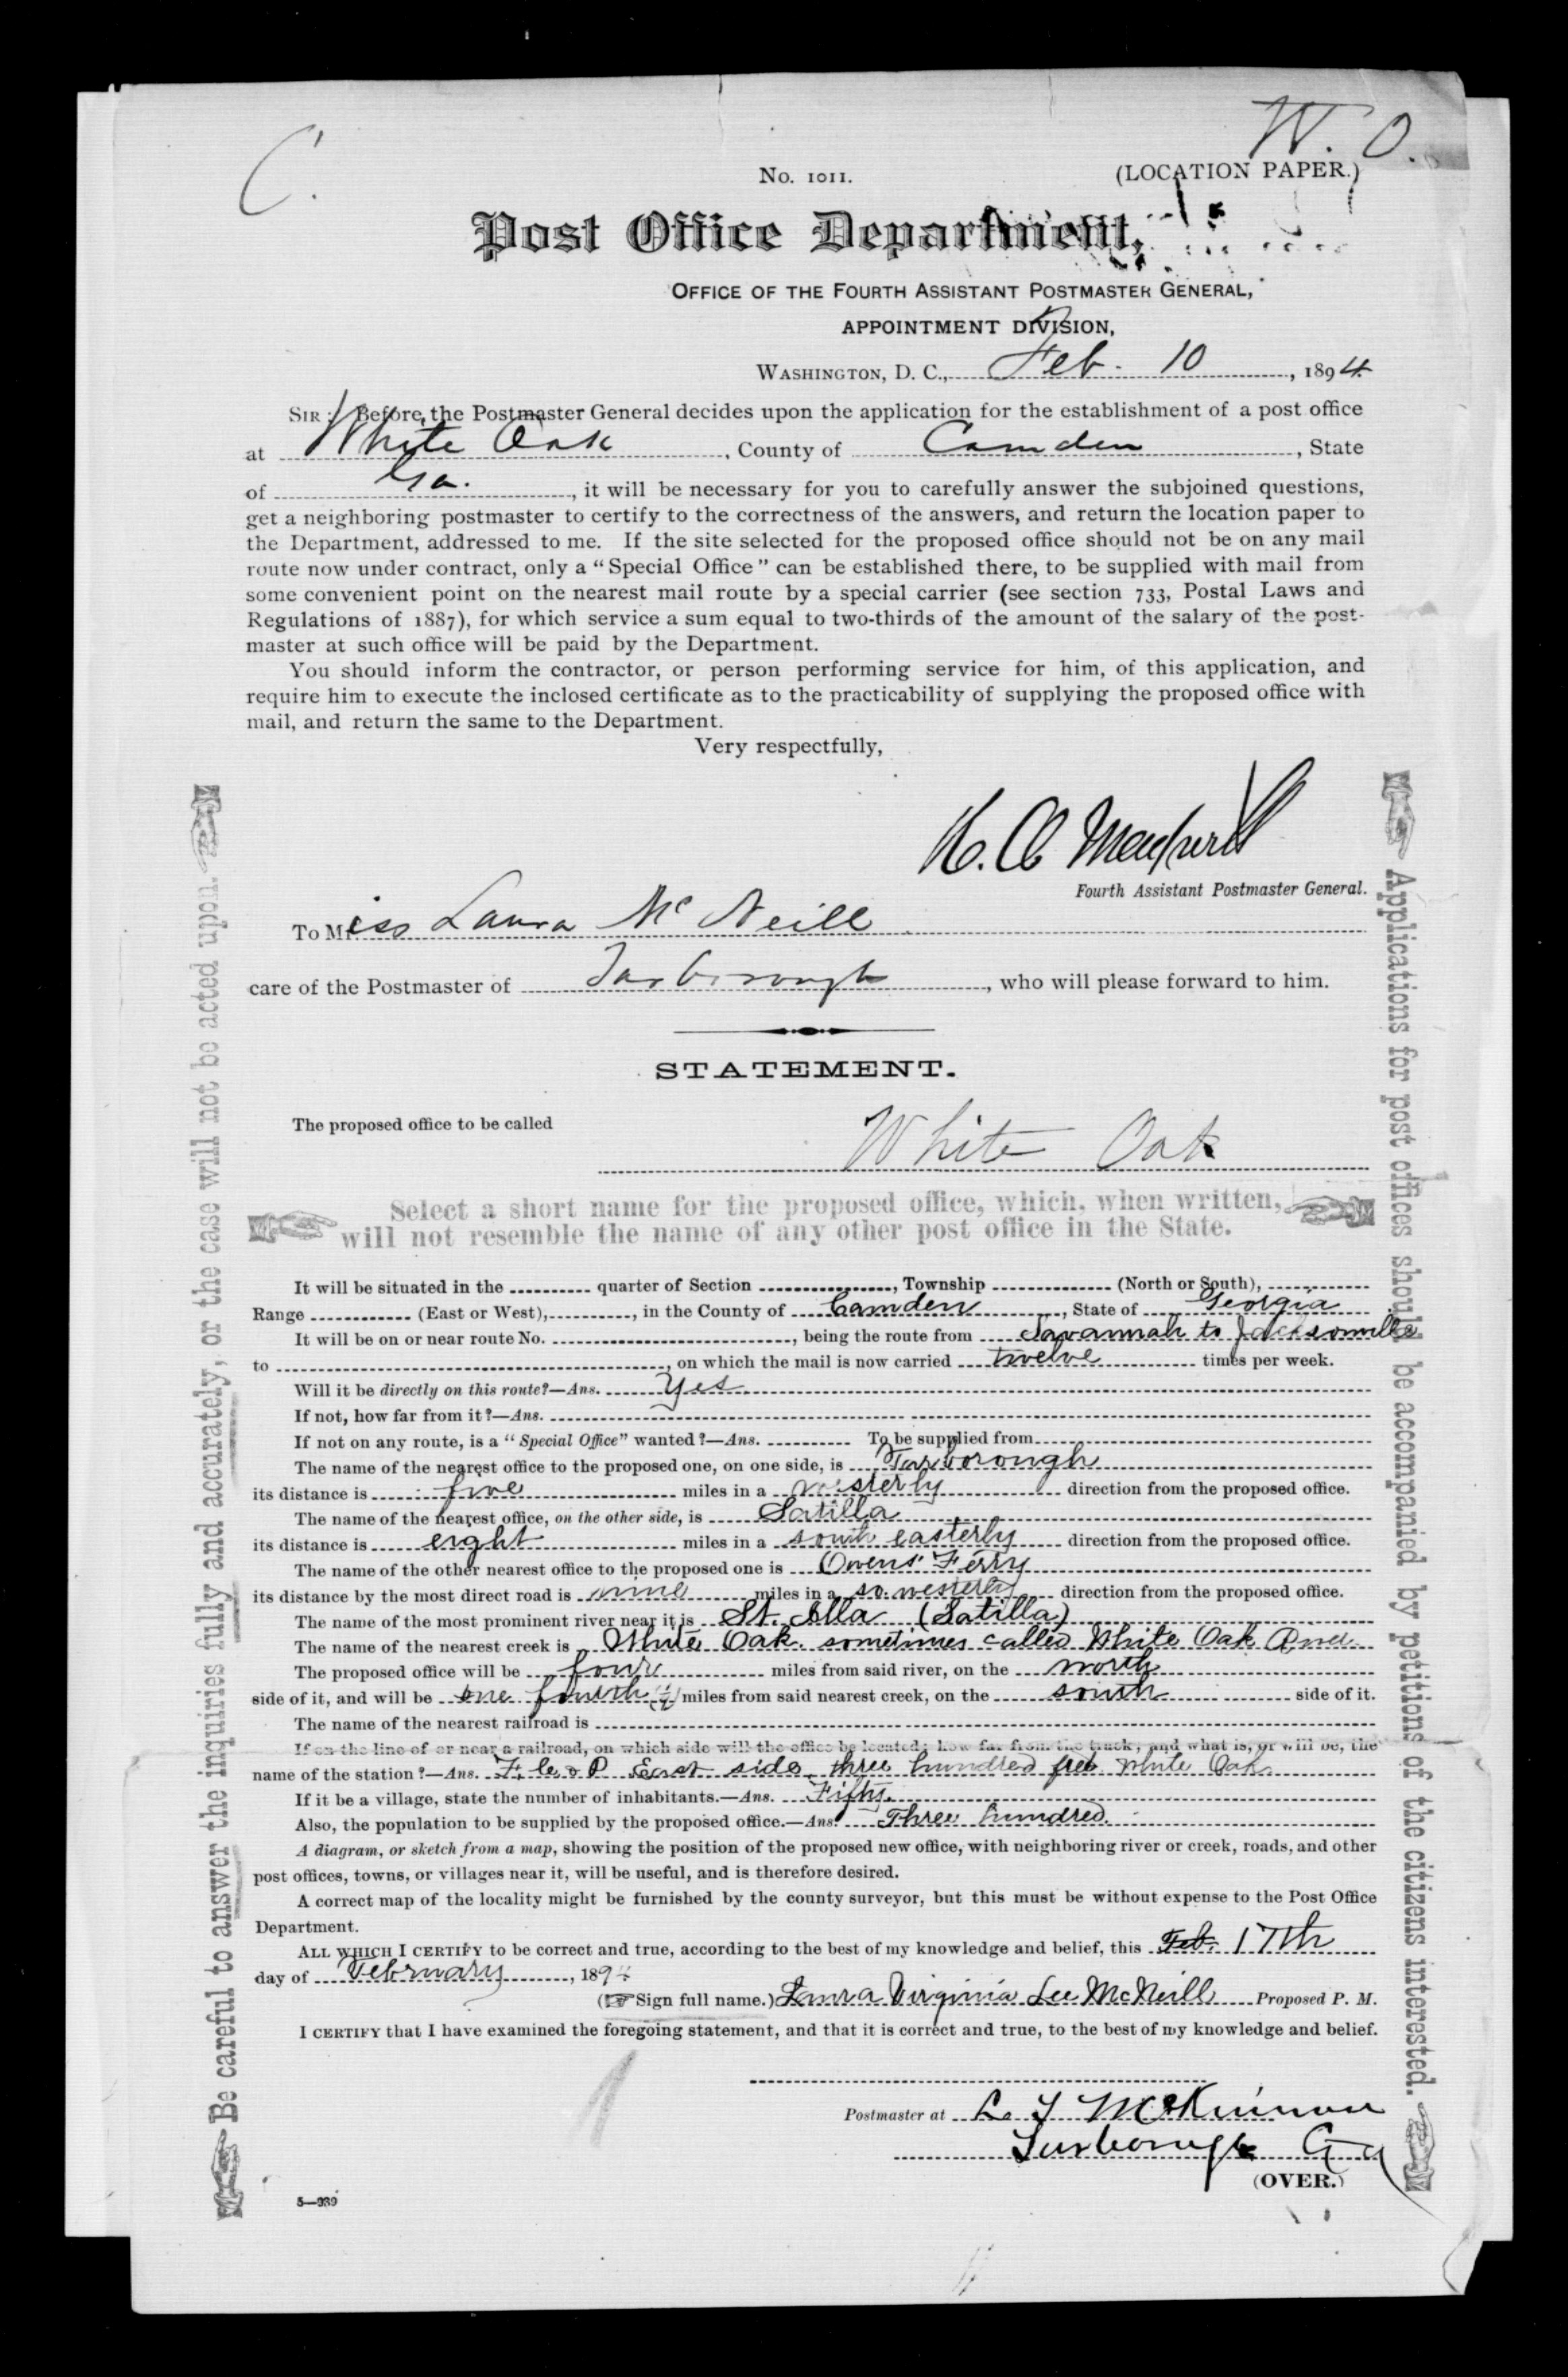 C.
W. O.
No. 1011.
(LOCATION PAPER.)
Post Office Department,
OFFICE OF THE FOURTH ASSISTANT POSTMASTER GENERAL,
APPOINTMENT DIVISION,
WASHINGTON, D. C., Feb. 10, 1894.
SIR: Before the Postmaster General decides upon the application for the establishment of a post office
at White Oak, County of Camden, State
of Ga., it will be necessary for you to carefully answer the subjoined questions,
get a neighboring postmaster to certify to the correctness of the answers, and return the location paper to
the Department, addressed to me. If the site selected for the proposed office should not be on any mail
route now under contract, only a “Special Office” can be established there, to be supplied with mail from
some convenient point on the nearest mail route by a special carrier (see section 733, Postal Laws and
Regulations of 1887), for which service a sum equal to two-thirds of the amount of the salary of the post-
master at such office will be paid by the Department.
You should inform the contractor, or person performing service for him, of this application, and
require him to execute the inclosed certificate as to the practicability of supplying the proposed office with
mail, and return the same to the Department.
Very respectfully,
Fourth Assistant Postmaster General.
To Miss Laura McNeill
care of the Postmaster of Tarborough, who will please forward to him.
STATEMENT.
The proposed office to be called
White Oak
Select a short name for the proposed office, which, when written,
will not resemble the name of any other post office in the State.
It will be situated in the quarter of Section, Township (North or South),
Range (East or West), in the County of Camden, State of Georgia
It will be on or near route No., being the route from Savannah to Jacksonville
to, on which the mail is now carried twelve times per week.
Will it be directly on this route?—Ans. Yes
If not, how far from it?—Ans.
If not on any route, is a “Special Office” wanted?—Ans. To be supplied from
The name of the nearest office to the proposed one, on one side, is Tarborough
its distance is five miles in a westerly direction from the proposed office.
The name of the nearest office, on the other side, is Satilla
its distance is eight miles in a south easterly direction from the proposed office.
The name of the other nearest office to the proposed one is Owens' Ferry
its distance by the most direct road is nine miles in a so. westerly direction from the proposed office.
The name of the most prominent river near it is St. Illa (Satilla)
The name of the nearest creek is White Oak. sometimes called White Oak River
The proposed office will be four miles from said river, on the north
side of it, and will be one fourth miles from said nearest creek, on the south side of it.
The name of the nearest railroad is
If on the line of or near a railroad, on which side will the office be located; how far from the track; and what is, or will be, the
name of the station?—Ans. F. C & P East side three hundred feet White Oak
If it be a village, state the number of inhabitants.—Ans. Fifty.
Also, the population to be supplied by the proposed office.—Ans. Three hundred.
A diagram, or sketch from a map, showing the position of the proposed new office, with neighboring river or creek, roads, and other
post offices, towns, or villages near it, will be useful, and is therefore desired.
A correct map of the locality might be furnished by the county surveyor, but this must be without expense to the Post Office
Department.
ALL WHICH I CERTIFY to be correct and true, according to the best of my knowledge and belief, this Feb. 17th
day of February, 1894
(Sign full name.) Laura Virginia Lee McNeill Proposed P. M.
I CERTIFY that I have examined the foregoing statement, and that it is correct and true, to the best of my knowledge and belief.
Postmaster at L T McKinnon
Tarborough Ga
(OVER.)
5—939
Be careful to answer the inquiries fully and accurately, or the case will not be acted upon.
Applications for post offices should be accompanied by petitions of the citizens interested.